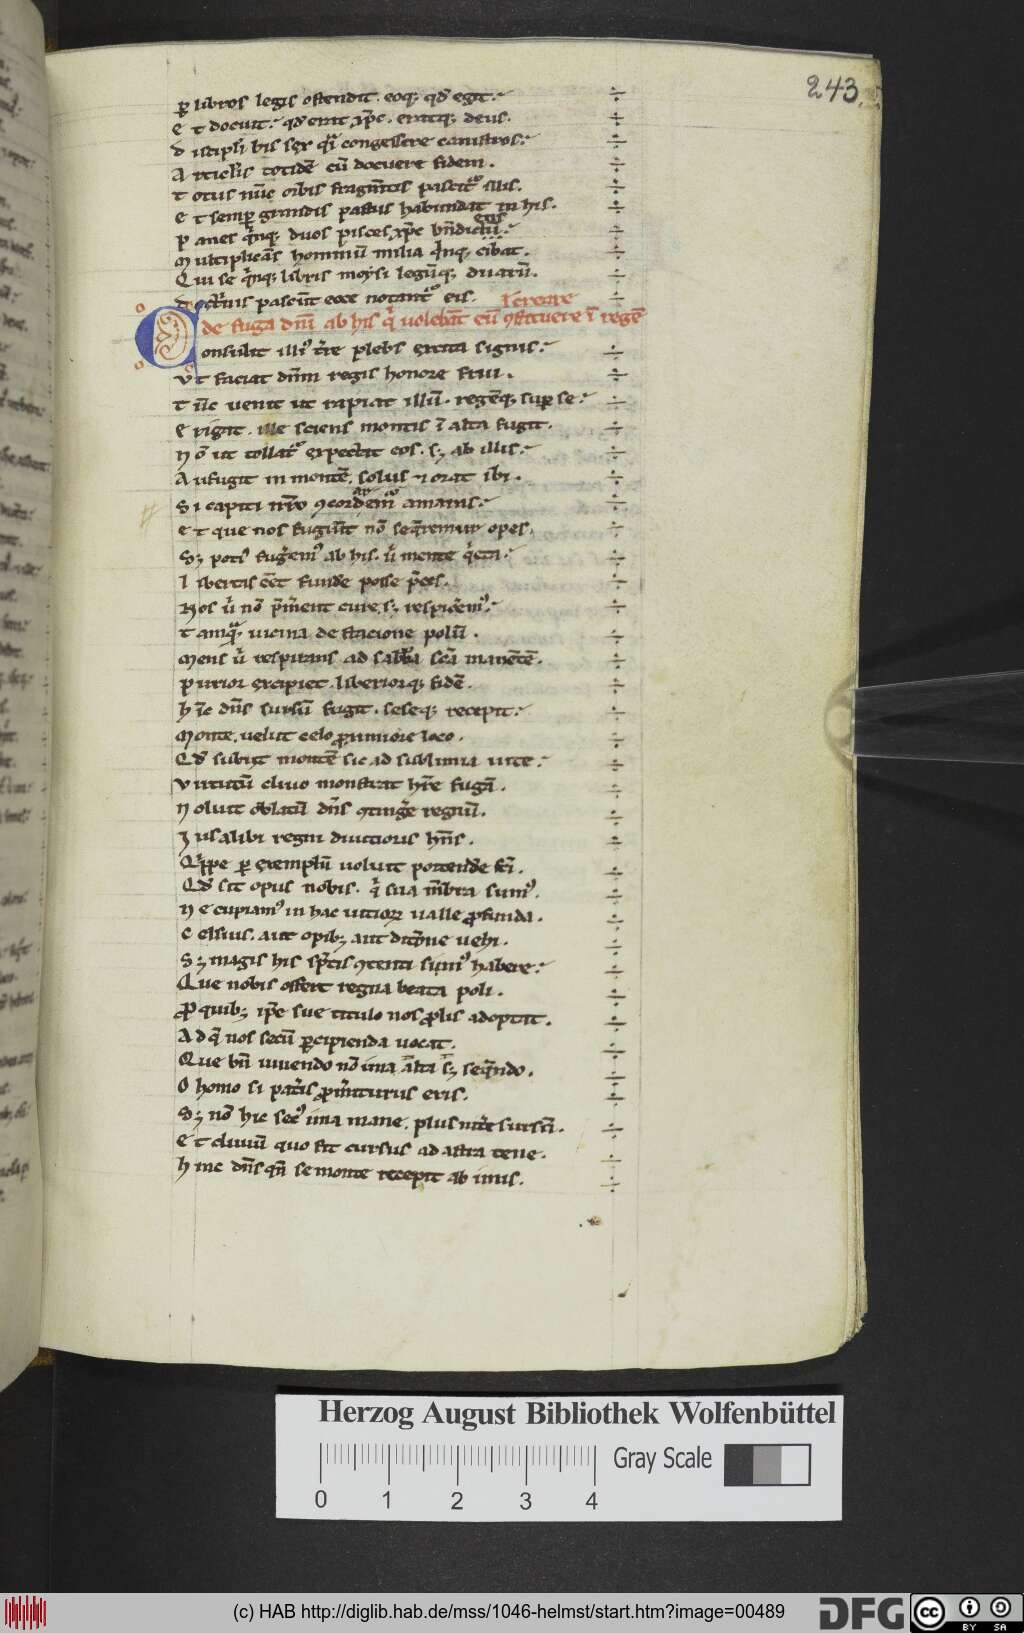 243
ꝑ libros legis ostendit. eoq; qđ egit:
E t docuit: qđ erat xp̄c. eratq; deus.
D iscipli bis sex qͣi congessere canistros:
A rticl̓is totidē cū docuere fidem.
T otus nūc orbis fragm̄tis pascitᷣ illis.
E t semꝑ grandis pastus habundat in his.
P anes qⁱnq; duos pisces xp̄c bn̄dictū:
eiis
M ultiplicās hominū milia qⁱnq; cibat.
Qui se qⁱnq; libris moysi legūq; duarū.
D octⁱnis pascūt ecce notantᷣ eis.
i creare
de fuga dn̄i ab his qⁱ volebāt eū ꝯstituere ī regē
Consulit illiꝰ tr̄e plebs excita signis:
V t faciat dn̄m regis honore frui.
T ūc venit ut rapiat illū. regēq; suꝑ se:
E rigat. ille sciens montis ī alta fugit.
N ō ut tollatᷣ expectat eos. sꝫ ab illis:
A ufugit in montē. solus ⁊ orat ibi.
S i capiti nr̄o ꝯcordem amamꝰ:
E t que nos fugiūt nō seqͣremur opes.
Sꝫ potⁱ fugͤemꝰ ab his. ū mente qⁱeta:
L ibertis eēt funde posse p̄ces.
Nos ū nō p̄merent cure. sꝫ respicͤemꝰ:
T amqͣ; vicina de stacione polū.
Mens ū respirans ad sabbͣa scā manētē.
P urior excipiet. liberiorq; fidē.
H īc dn̄s sursū fugit. seseq; recepit:
Monte. velut celo ꝓximiore loco.
Qđ subiit montē sic ad sublimia vite:
Virtutū clivo monstrat hr̄e fugā.
N oluit oblatū dn̄s ꝯtingͤe regnū.
I us alibi regni divitioris hn̄s.
Qⁱppe ꝑ exemplū voluit portende fcī.
Qđ sit opus nobis. qⁱ sua mb̄ra sumꝰ.
N e cupiamꝰ in hac vitioꝝ valle ꝓfunda.
C elsius. aut opibꝫ aut ditione vehi.
Sꝫ magis his spr̄tis ꝯtenti simꝰ habere:
Que nobis offert regna beata poli.
Pro quibꝫ ip̄e sue titulo nos ꝓlis adoptit.
Ad qͤ nos secū ꝑcipienda vocat.
Que bn̄ vivendo nō ima alta sꝫ seqͣndo.
O homo si patⁱis ꝓmⁱturus eris.
Sꝫ nō hic secꝰ ima mane. plus nitͤe sursū.
E t clivū quo fit cursus ad astra tene.
H inc dn̄s qn̄ se monte recepit ab imis.
Herzog August Bibliothek Wolfenbüttel
Gray Scale
0 1 2 3 4
(c) HAB http://diglib.hab.de/mss/1046-helmst/start.htm?image=00489
DFG
cc BY SA